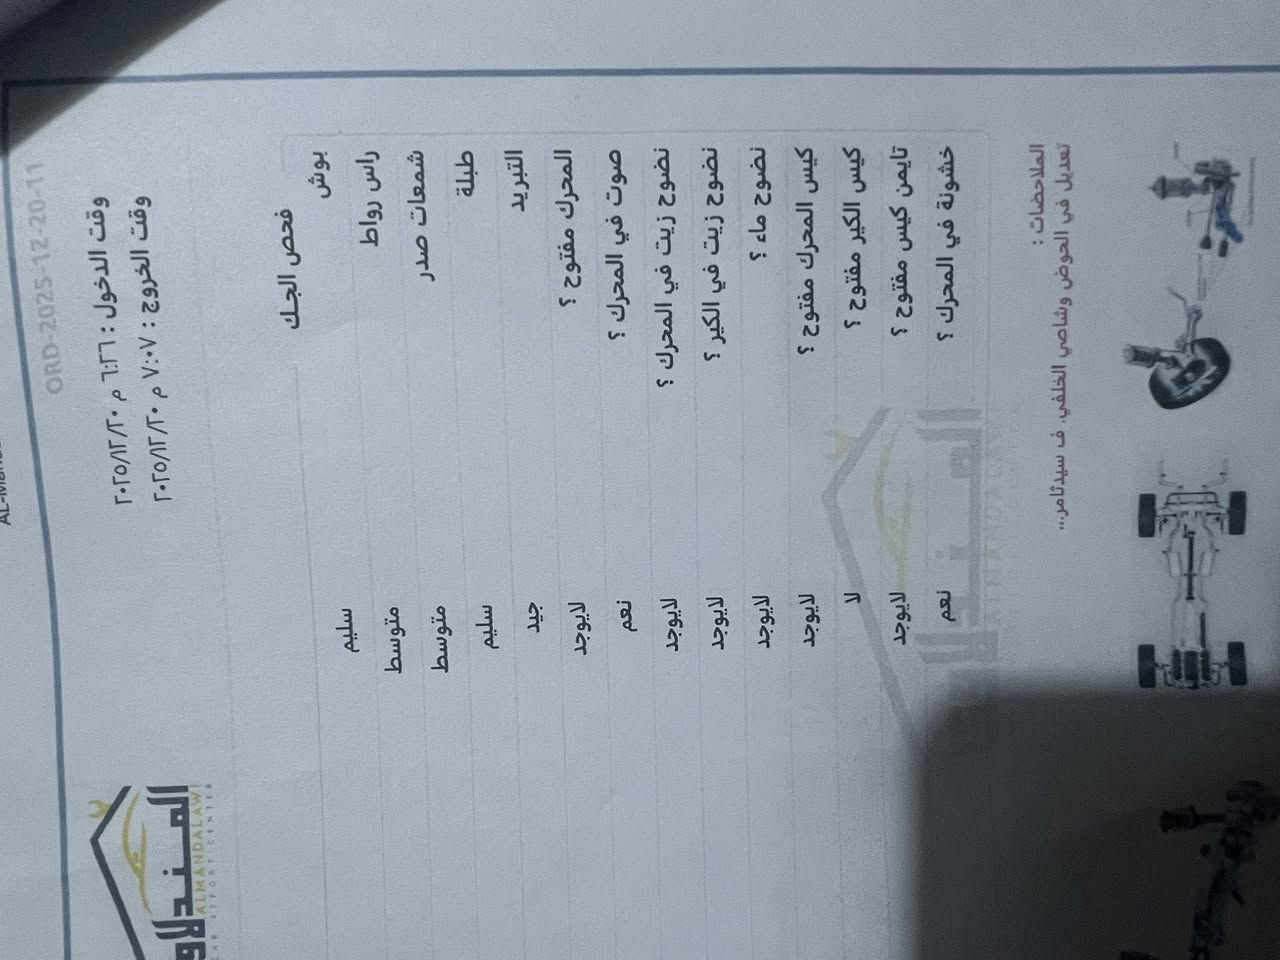 ORD-2025-12-20-11
وقت الدخول : ٦:٢٦ م ٢٠٢٥/١٢/٢٠
وقت الخروج : ٧:٠٧ م ٢٠٢٥/١٢/٢٠
المندلاو
ALMANDALAWI
CAR REPORT CENTER
فحص الجك
بوش سليم
راس رواط متوسط
شمعات صدر متوسط
طبلة سليم
التبريد جيد
المحرك مفتوح ؟ لايوجد
صوت في المحرك ؟ نعم
نضوح زيت في المحرك ؟ لايوجد
نضوح زيت في الكير ؟ لايوجد
نضوح ماء ؟ لايوجد
كيس المحرك مفتوح ؟ لايوجد
كيس الكير مفتوح ؟ لا
تايمن كيس مفتوح ؟ لايوجد
خشونة في المحرك ؟ نعم
الملاحضات :
تعديل في الحوض وشاصي الخلفي. ف سيدثامر...